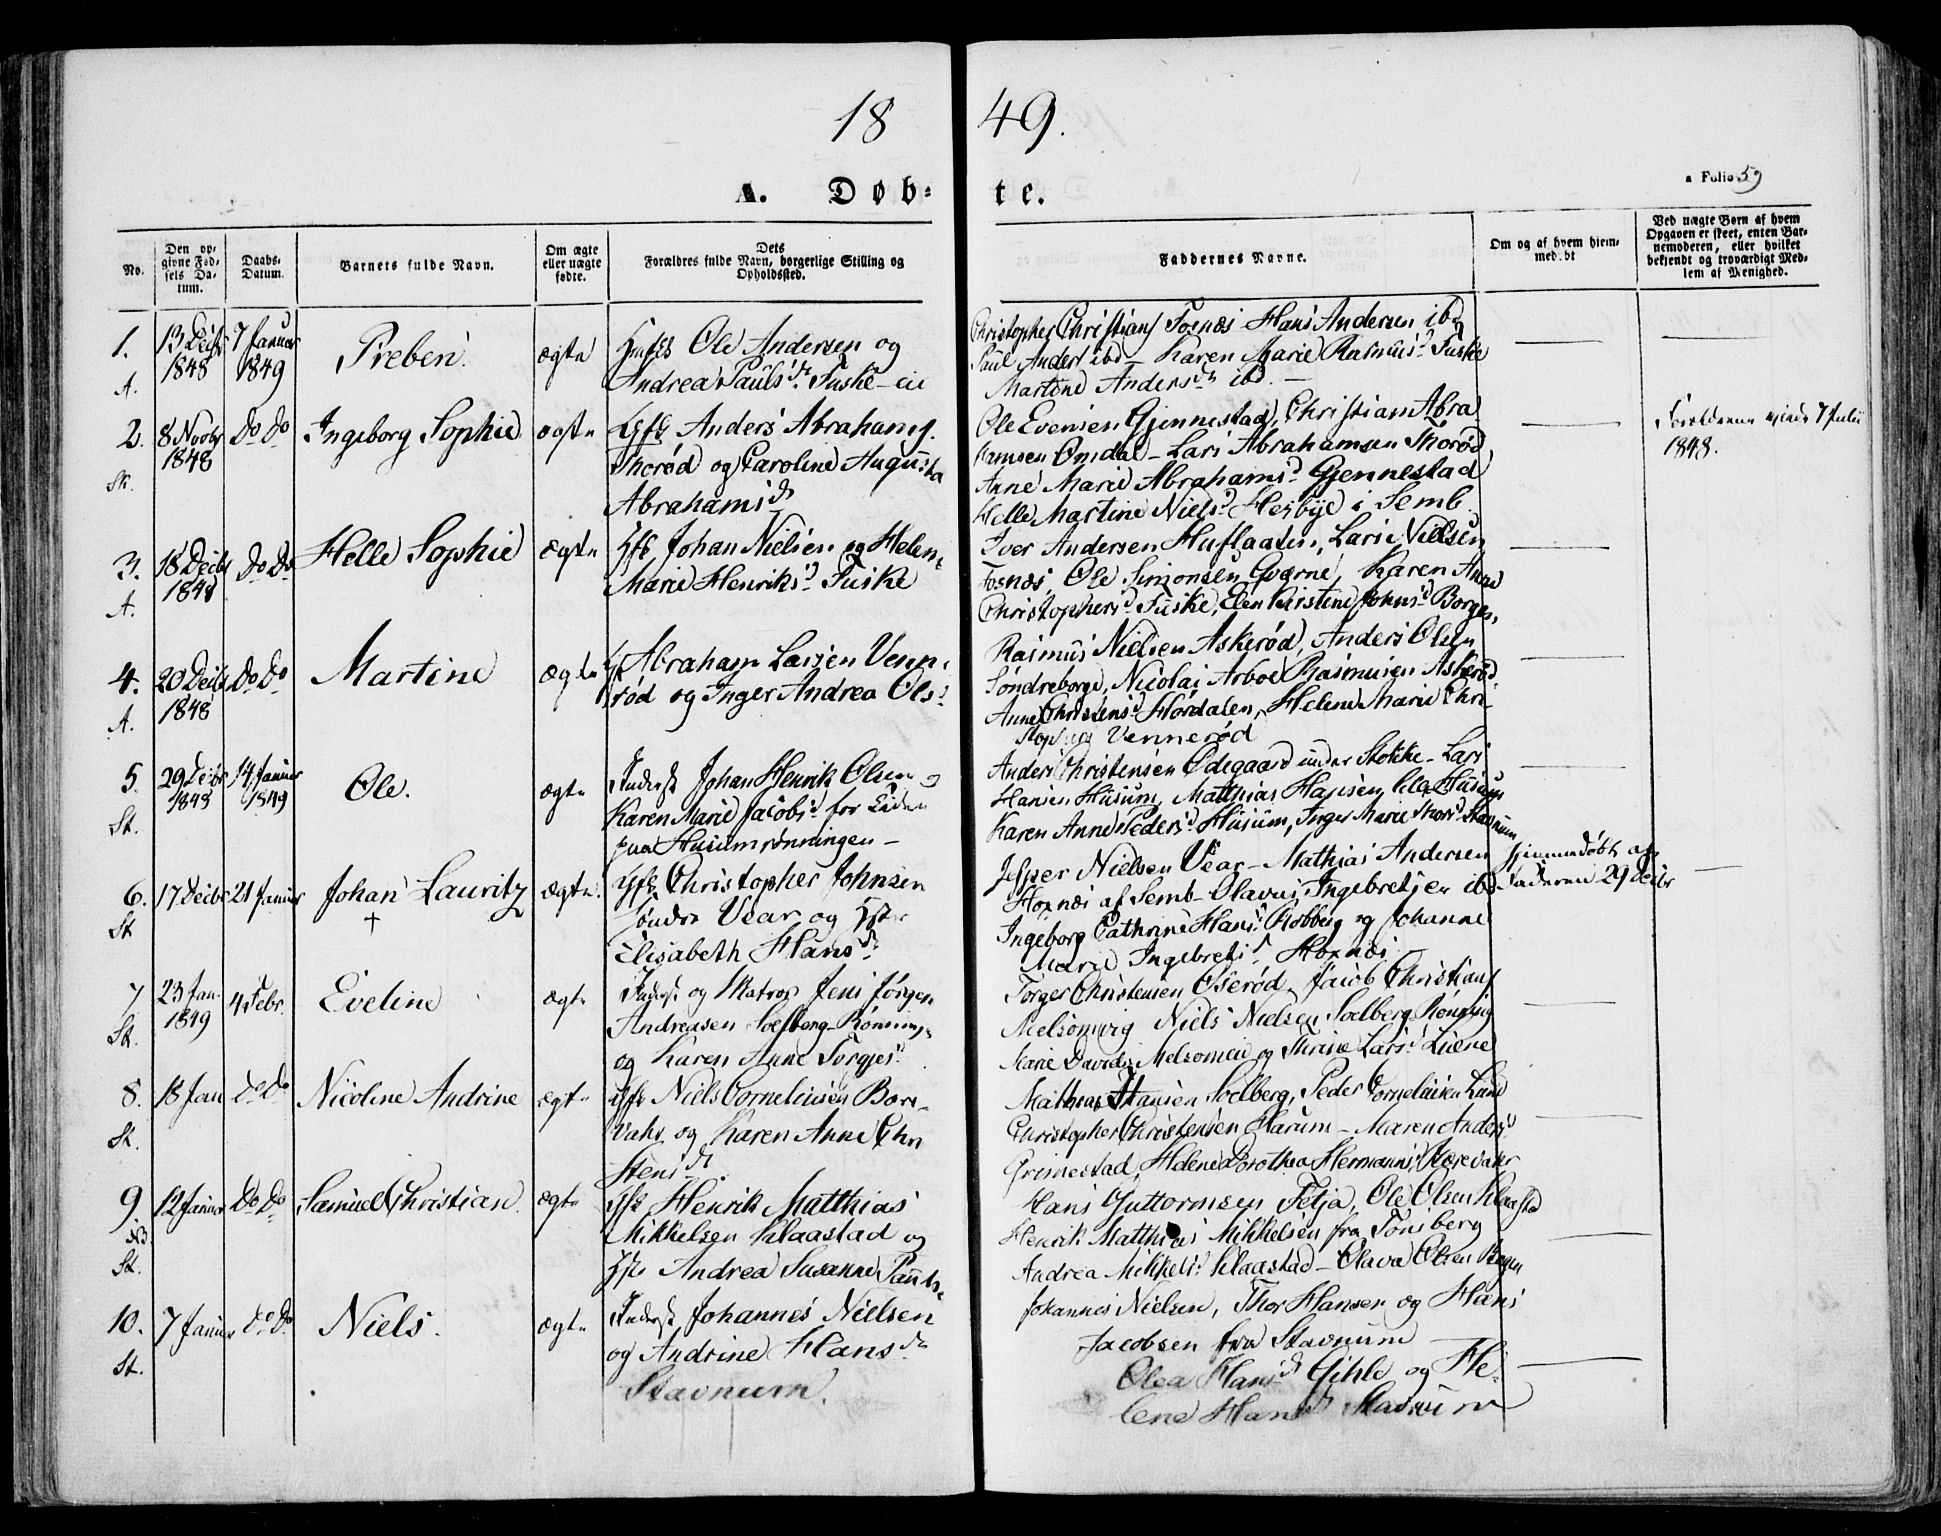 1849.
A. Døbte.
a Folio 59
No.
Den opgivne Fødsels Datum.
Daabs-Datum.
Barnets fulde Navn.
Om ægte eller uægte fødte.
Dets Forældres fulde Navn, borgerlige Stilling og Opholdssted.
Faddernes Navne.
Om og af hvem hjemmedøbt
Ved uægte Børn af hvem Opgaven er skeet, enten Barnemoderen, eller hvilket bekjendt og troværdigt Medlem af Menighed.
1. 13 Decbr 1848 7 Januar 1849 Preben. ægte
A.
Ole Andersen og
Andrea Pauls D. Fuske-eie
Christopher Christians Fosnæs Hans Andersen ibd
Paul Anders ibd - Karen Marie Rasmus D. Fuske
Martine Anders D. ibd. -
2. 8 Novbr 1848 Do Do Ingeborg Sophie ægte
Sk.
Gfb Anders Abrahams.
Thorød og Caroline Augusta
Abrahams D
Ole Evensen Gjennestad, Christian Abra
hamsen Omdal - Lars Abrahamsen Thorød,
Anne Marie Abrahams D. Gjennestad
Helle Martine Niels D. Hesbye i Semb.
Forældrene viede 7 Julii
1848.
3. 18 Decbr 1848 Do Do Helle Sophie ægte
A.
Gfb Johan Nielsen og Helene
Marie Henriks D. Fuske
Iver Andersen Huflaaten, Lars Nielsen
Fosnæs, Ole Simonsen Qværne, Karen Anne
Christophers D. Fuske, Elen Kirstine Johns D. Borge,
4. 20 Decbr 1848 Do Do Martine ægte
A.
Abraham Larsen Venne
rød og Inger Andrea Ols D.
Rasmus Nielsen Askerød, Anders Olsen
Søndreborge, Nicolai Arboe Rasmusen Askerød,
Anne Christens D. Hørdalen, Helene Marie Chri
stophers Vennerød
5. 29 Decbr 1848 14 Januar 1849 Ole. ægte
St.
Inderst Johan Henrik Olsen og
Karen Marie Jacobs D. for Tiden
paa Husumrønningen -
Anders Christensen Ødegaard under Stokke - Lars
Hansen Husum, Matthias Hansen Husum
Karen Anne Peders D. Husum, Inger Marie Thors D. Stavnum
6. 17 Decbr 21 Januar Johan Lauritz ægte.
St †
Gfb. Christopher Johnsen
Søndre Vear og Hst
Elisabeth Hans D.
Jesper Nielsen Vear - Mathias Andersen
Hoxnæs af Semb - Olavus Ingebretsen ibd
Ingeborg Cathrine Hans D. Robberg og Johanne
Marie Ingebrets D. Hoxnæs
Hjemmedøbt af
Faderen 29 Decbr
7 23 Jan. 1849 4 Febr. Eveline ægte
St.
Inderst og Matros Jens Jørgen
Andreasen Soelberg-Rønning
og Karen Anne Torgjes D.
Torger Christensen Oserød, Jacob Christians
Melsomvig Niels Nielsen Soelberg Rønning
Marie Davids Melsomvig og Thrine Lars D. Liene
8. 18 Jan Do Do Nicoline Andrine ægte
St.
Gfb Niels Corneliusen Bore-
vahr og Karen Anne Chri
stens D.
Mathias Hansen Solberg, Peder Corneliusen Lund
Christopher Christensen Harum - Maren Anders D
Grimestad, Helene Dorothea Hermanns D. Borevahr
9. 12 Januar Do Do Samuel Christian. ægte
NB.
St.
Gfb Henrik Matthias
Mikkelsen Klaastad og
Hst Andrea Susanne Pauls D.
Hans Guttormsen Fetja, Ole Olsen Klaastad
Henrik Matthias Mikkelsen fra Tønsberg
Andrea Mikkels D. Klaastad - Olava Olsen Bogen
10. 7 Januar Do Do Niels. ægte
St.
Inderst Johannes Nielsen
og Andrine Hans D.
Stavnum.
Johannes Nielsen, Thor Hansen og Hans
Jacobsen fra Stavnum
Olea Hans D Gihle og He-
lene Hans D Stavnum